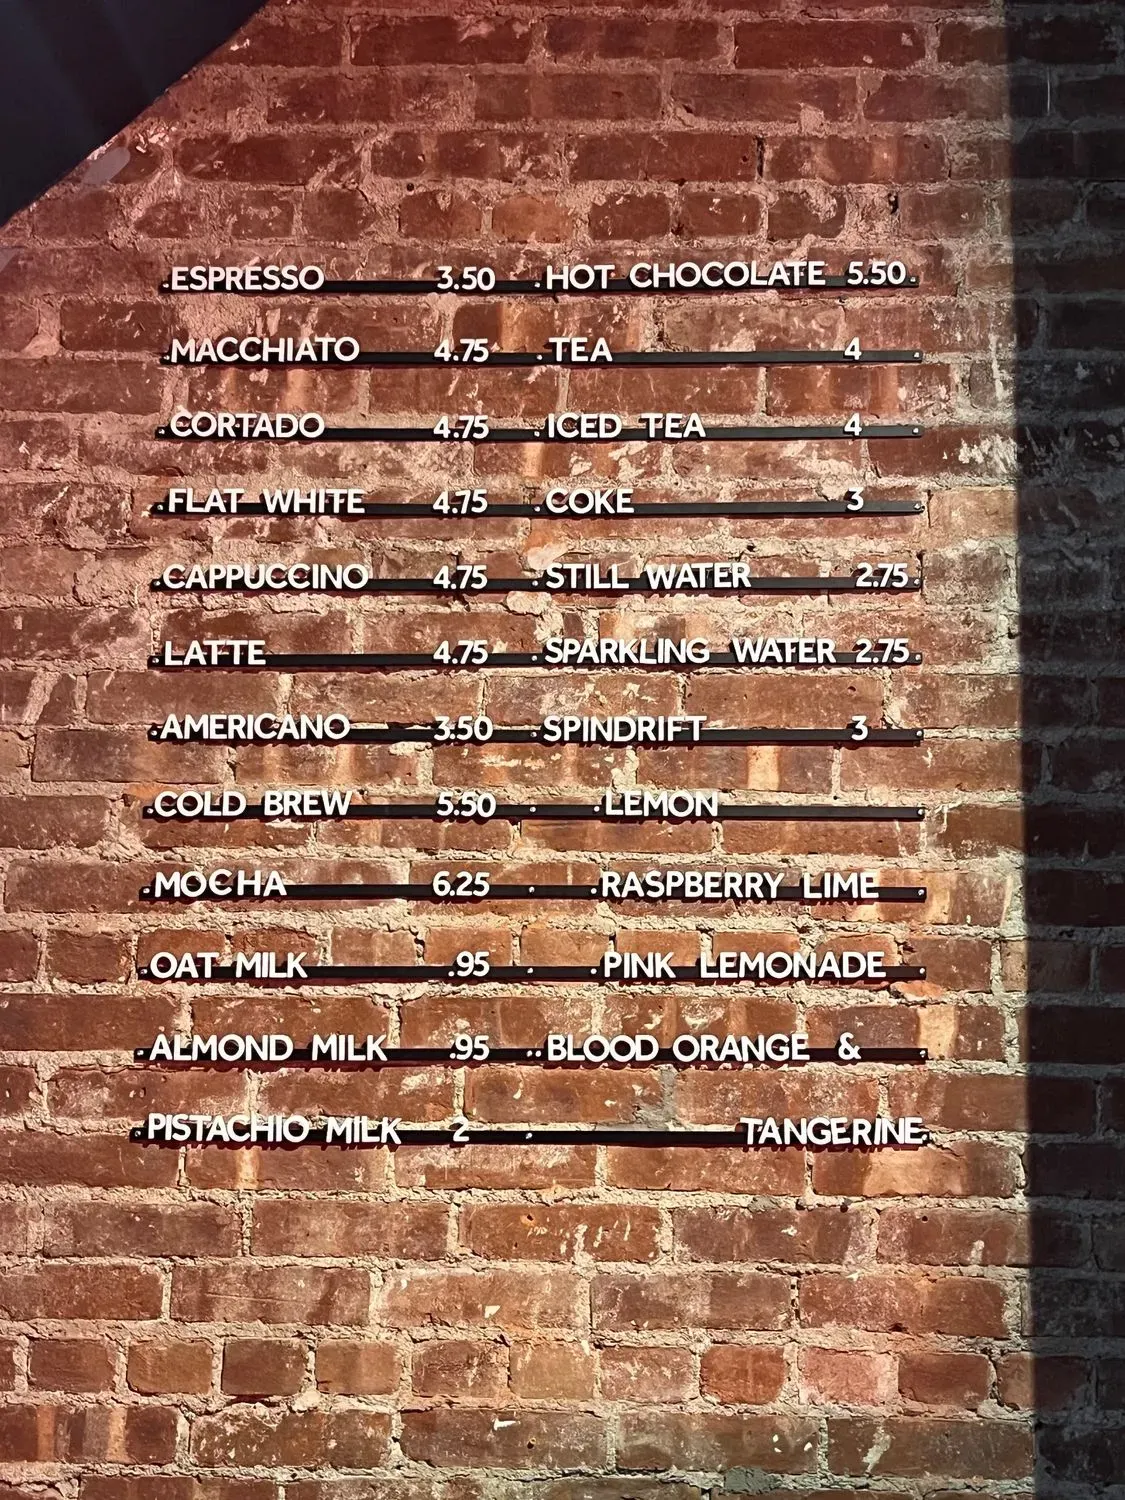 ESPRESSO 3.50 HOT CHOCOLATE 5.50
MACCHIATO 4.75 TEA 4
CORTADO 4.75 ICED TEA 4
FLAT WHITE 4.75 COKE 3
CAPPUCCINO 4.75 STILL WATER 2.75
LATTE 4.75 SPARKLING WATER 2.75
AMERICANO 3.50 SPINDRIFT 3
COLD BREW 5.50 LEMON
MOCHA 6.25 RASPBERRY LIME
OAT MILK .95 PINK LEMONADE
ALMOND MILK .95 BLOOD ORANGE &
PISTACHIO MILK 2 TANGERINE